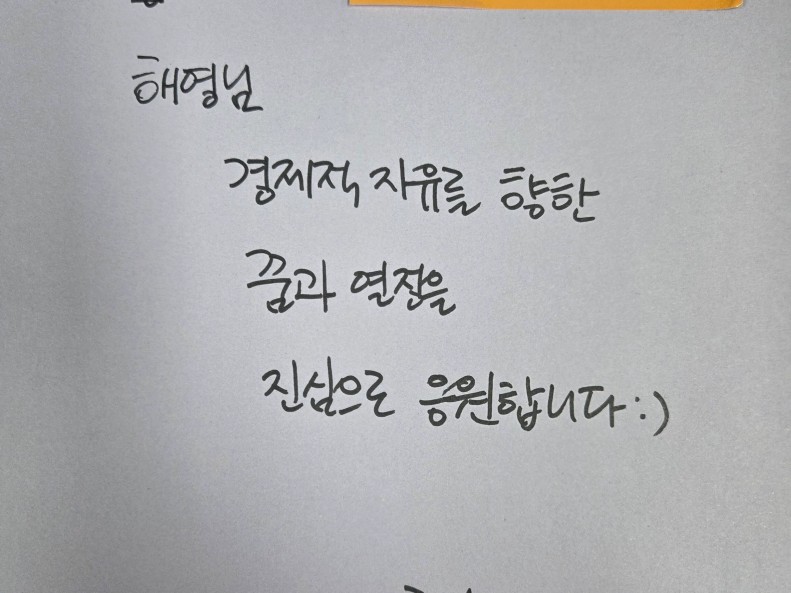 해영님
경제적 자유를 향한
꿈과 열정을
진심으로 응원합니다 :)